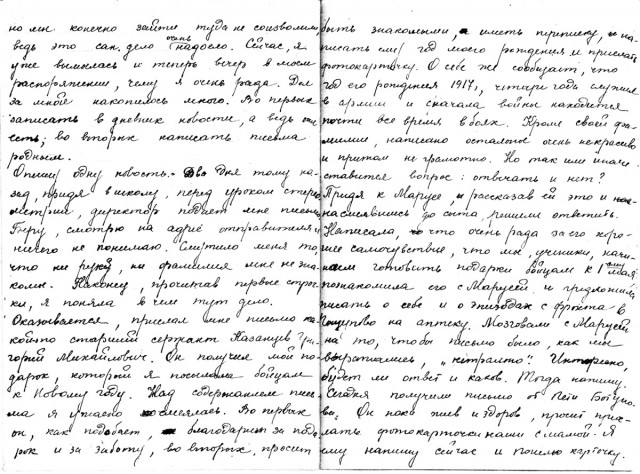 но мы конечно зайти туда не соизволим,
ведь это сан. дело очень надоело. Сейчас, я
уже вымылась и теперь вечер в моем
распоряжении, чему я очень рада. Дел
за мной накопилось много. Во первых
записать в дневник новости, а ведь они
есть; во вторых написать письма
родным.
Опишу одну новость. Два дня тому на-
зад, придя в школу, перед уроком стерео
метрии, директор подает мне письмо
Беру, смотрю на адрес отправителя и
ничего не понимаю. Смутило меня то,
что ни рука, ни фамилия мне не зна-
комы. Наконец, прочитав первые строч
ки, я поняла в чем тут дело.
Оказывается, прислал мне письмо ка-
кой то старший сержант Казанцев Гри-
горий Михайлович. Он получил мой по-
дарок, который я посылала бойцам
к Новому году. Над содержанием пись-
ма я ужасно смеялась. Во первых
он, как подобает, благодарит за пода
рок и за заботу, во вторых, просит
быть знакомыми, иметь переписку, на-
писать ему год моего рождения и прислать
фотокарточку. О себе же сообщает, что
год его рождения 1917, четыре года служил
в армии и сначала войны находится
почти все время в боях. Кроме своей фа-
милии, написано остальное очень некрасиво
и притом не грамотно. Но так или иначе
ставится вопрос: отвечать и нет?
Придя к Марусе, рассказав ей это и
насмеявшись до сыта, решили ответить.
Написала, что очень рада за его хоро-
шее самочувствие, что мы, ученики, начи-
наем готовить подарки бойцам к 1 мая
познакомила его с Марусей и предложила
писать о себе и о эпизодах с фронта в
на аптеку. Мозговали с Марусей
на то, чтобы письмо было, как мы
выразились, „нейтрально“. Интересно,
будет ли ответ и каков. Тогда напишу.
Сегодня получили письмо от Пети
Он пока жив и здоров, просит прис-
лать фотокарточки наши с мамой. Я
ему напишу сейчас и пошлю карточку.